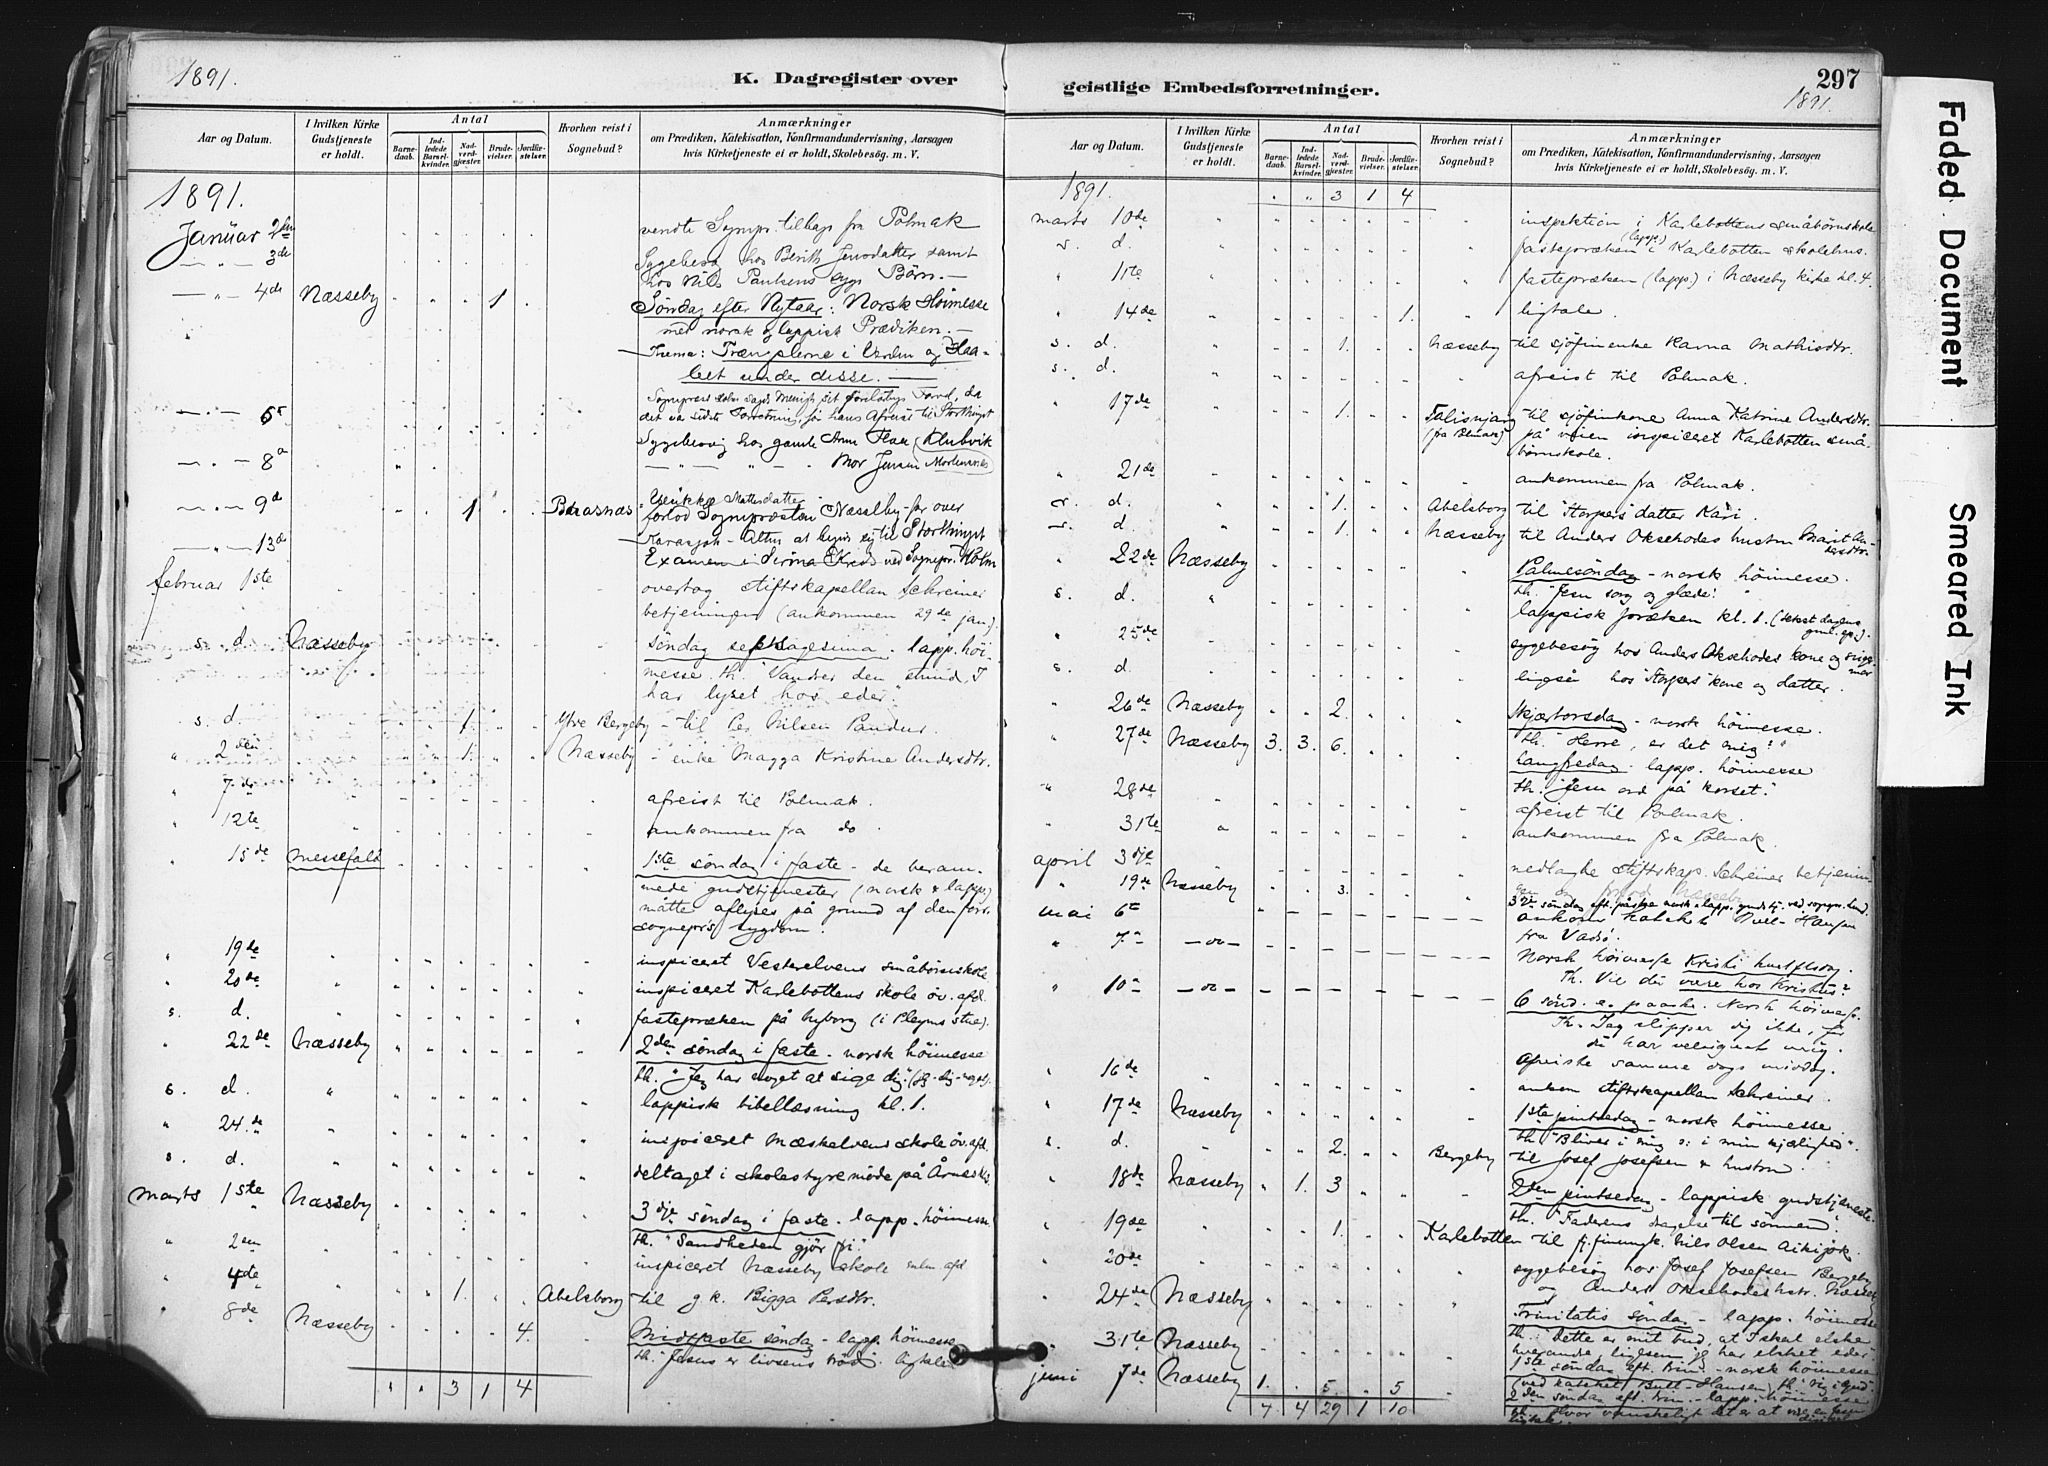 1891.
K. Dagregister over
Aar og Datum.
I hvilken Kirke Gudstjeneste er holdt.
Antal
Barne- daab.
Ind- ledede Barsel- kvinder.
Nad- verd- gjester.
Brude- vielser.
Jordfæ- stelser.
Hvorhen reist i Sognebud?
Anmærkninger
om Prædiken, Katekisation, Konfirmandundervisning, Aarsagen
hvis Kirketjeneste ei er holdt, Skolebesøg. m. V.
1891.
Januar 2den vendte Sognepr. tilbage fra Polmak
— " — 3de Sygebesøg hos Berith Jensdatter samt
hos Nils Paulsens syge Børn. —
— " — 4de Næsseby 1 Søndag efter Nytaar: Norsk Høimesse
med norsk og lappisk Prædiken. —
Thema: Trængslerne i Verden og Haa-
bet under disse. —
det var sidste Forretning, før hans Afreise til Storthinget
— " — 8a Mor Jensen Mortensnes
— " — 9de 1
— " — 13de
februar 1ste overtog stiftskapellan Schreiner
betjeningen (ankommen 29de jan).
s. d. Næsseby søndag septuagesima. lapp. høi-
messe. th. "Vandrer den stund I
har lyset hos eder".
s. d. 1. Ytre Bergeby – til Per Nilsen Pandur.
" 2den 1. Næsseby – enke Magga Kristine Andersdtr.
" 7de afreist til Polmak.
" 12te ankommen fra do
" 15de messefald 1ste søndag i faste – de beram-
mede gudstjenester (norsk & lapp)
måtte aflyses på grund af den forr.
sognepr's sygdom.
" 19de inspiceret Vesterelvens småbørnskole
" 20de inspiceret Karlebottens skole öv. afd.
s. d. fastepræken på Nyborg (i Pleyms stue).
" 22de Næsseby 2den søndag i faste – norsk høimesse
th. "Jeg har noget at sige dig"
s. d. lappisk bibellæsning kl. 1.
" 24de inspiceret Mæskelvens skole öv. afd.
s. d. deltaget i skolestyremøde på
marts 1ste Næsseby 3dje søndag i faste – lapp. høimesse.
th. "Sandheden gjør fri."
" 2den inspiceret Næsseby skole
" 4de 1. Abelsborg til g. k. Bigga Persdtr.
" 8de Næsseby 4. Midfaste søndag – lapp. høimesse
th. "Jesus er livsens brød". ligtale
" " 3 1 4
geistlige Embedsforretninger.
297
1891.
Aar og Datum.
I hvilken Kirke Gudstjeneste er holdt.
Antal
Barne- daab.
Ind- ledede Barsel- kvinder.
Nad- verd- gjester.
Brude- vielser.
Jordfæ- stelser.
Hvorhen reist i Sognebud?
Anmærkninger
om Prædiken, Katekisation, Konfirmandundervisning, Aarsagen
hvis Kirketjeneste ei er holdt, Skolebesøg. m. V.
1891. " " 3 1 4
marts 10de inspektion i Karlebottens småbørnskole
s. d. fastepræken (lapp) i Karlebotten skolehus.
" 11te fastepræken (lapp.) i Næsseby kirke kl. 4.
" 14de 1. ligtale.
s. d. 1. Næsseby til sjøfinenke Ravna Mathisdtr.
s. d. afreist til Polmak.
" 17de 1. (fra Polmak) til sjøfinkone Anna Katrine Andersdtr.
på veien inspiceret Karlebotten små-
børnskole.
" 21de ankommen fra Polmak.
s. d. 1. Abelsborg til "Storpers" datter Kari.
s. d. 1. Næsseby til Anders Oksehodes hustru Marit An-
dersdtr.
" 22de Næsseby Palmesøndag – norsk høimesse.
th. "Jesu sorg og glæde."
s. d. lappisk præken kl. 1. (tekst dagens
" 25de sygebesøg hos Anders Oksehodes kone og
s. d. ligeså hos "Storpers" kone og datter.
" 26de Næsseby 2. Skjærtorsdag – norsk høimesse.
th. "Herre, er det mig?"
" 27de Næsseby 3. 3. 6. Langfredag – lapp. høimesse
th. "Jesu ord på korset."
" 28de afreist til Polmak.
" 31te ankommen fra Polmak.
april 3dje nedlagde stiftskap. Schreiner betjenin-
gen og forlod Næsseby
" 19de Næsseby 3. 3die søndag eft. påske
mai 6te ankom katekh Bull-Hansen
fra Vadsø.
" 7de — do — Norsk høimesse Kristi himmelfartsdag.
Th. Vil du være hos Kristus?
" 10de — do — 6 sønd. e. paaske. Norsk høimesse.
Th. Jeg slipper dig ikke, før
du har velsignet mig.
Afreiste samme dags middag.
" 16de ankom stiftskapellan Schreiner.
" 17de Næsseby 1ste pintsedag – norsk høimesse
th. "Bliver i mig o: i min kjærlighed".
s. d. 2. Bergeby til Josef Josefsen & hustru.
" 18de Næsseby 1. 3 2den pintsedag – lappisk gudstjeneste.
th. "Faderens dragelse til sønnen."
" 19de 1. Karlebotten til Nils Olsen Aikijok.
" 20de sygebesøg hos Josef Josefsen Bergeby
og Anders Oksehodes hstr. Næsseby
" 24de Næsseby Trinitatis søndag – lapp. høimesse
th. "Dette er mit bud, at I skal elske
hverandre, ligesom jeg har elsket eder"
" 31te Næsseby 1ste søndag eft. trin. – norsk høimesse
juni 7de Næsseby 1. 5. 5 2den søndag eft. trin. – lapp. høimesse
th. "Hvor vanskeligt det er at
ligtale.
4 4 29 1 10
Faded Document
Smeared Ink